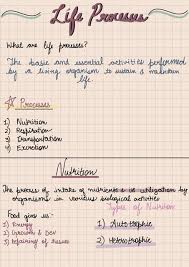 Life Processes
What are life processes?
The basic and essential activities performed
by a living organism to sustain & maintain
life.
Processes
1) Nutrition
2) Respiration
3) Transportation
4) Excretion
Nutrition
The process of intake of nutrients & is utilization by
organisms in various biological activities
Types of Nutrition
Food gives us:
1) Energy
2) Growth & Dev
3) Repairing of tissues
1) Autotrophic
2) Heterotrophic